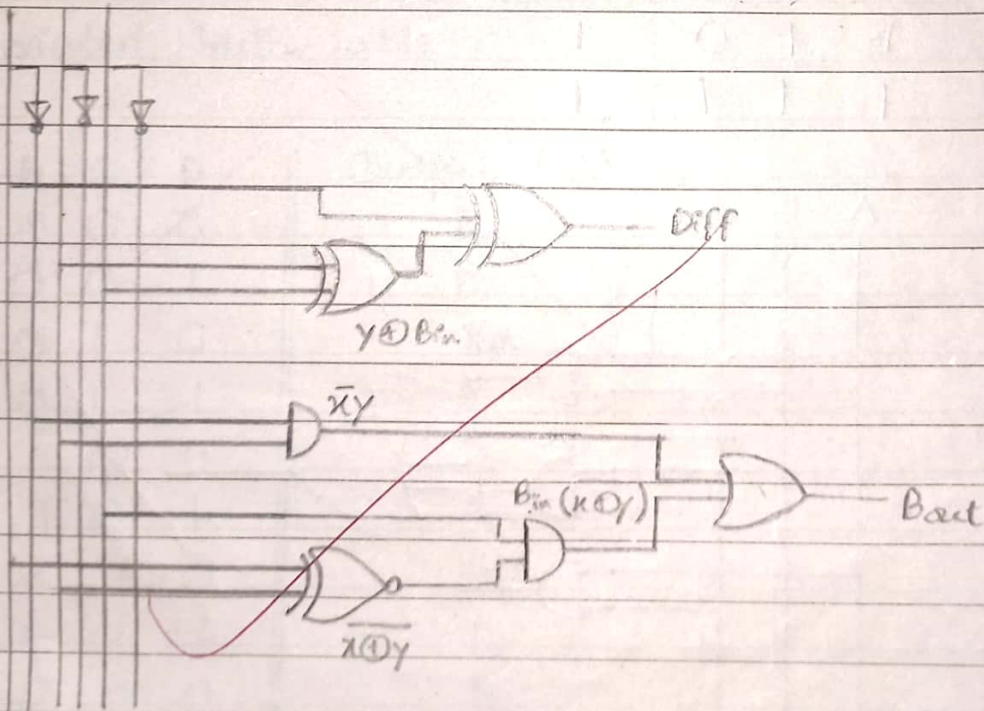 Diff
y⊕Bin
x̄y
Bin (x⊕y)
Bout
x⊕y̅